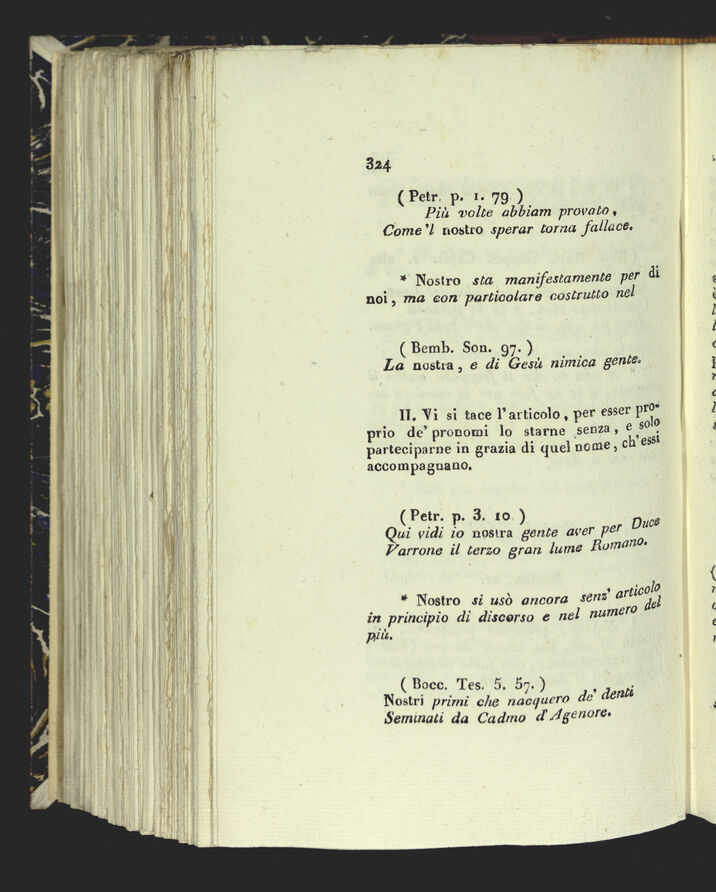 324
( Petr. p. 1. 79. )
Più volte abbiam provato,
Come 'l nostro sperar torna fallace.
* Nostro sta manifestamente per di
noi, ma con particolare costrutto nel
( Bemb. Son. 97. )
La nostra, e di Gesù nimica gente.
II. Vi si tace l'articolo, per esser pro-
prio de' pronomi lo starne senza, e solo
parteciparne in grazia di quel nome, ch'essi
accompagnano.
( Petr. p. 3. 10. )
Qui vidi io nostra gente aver per Duce
Varrone il terzo gran lume Romano.
* Nostro si usò ancora senz' articolo
in principio di discorso e nel numero del
più.
( Bocc. Tes. 5. 57. )
Nostri primi che nacquero de' denti
Seminati da Cadmo d'Agenore.